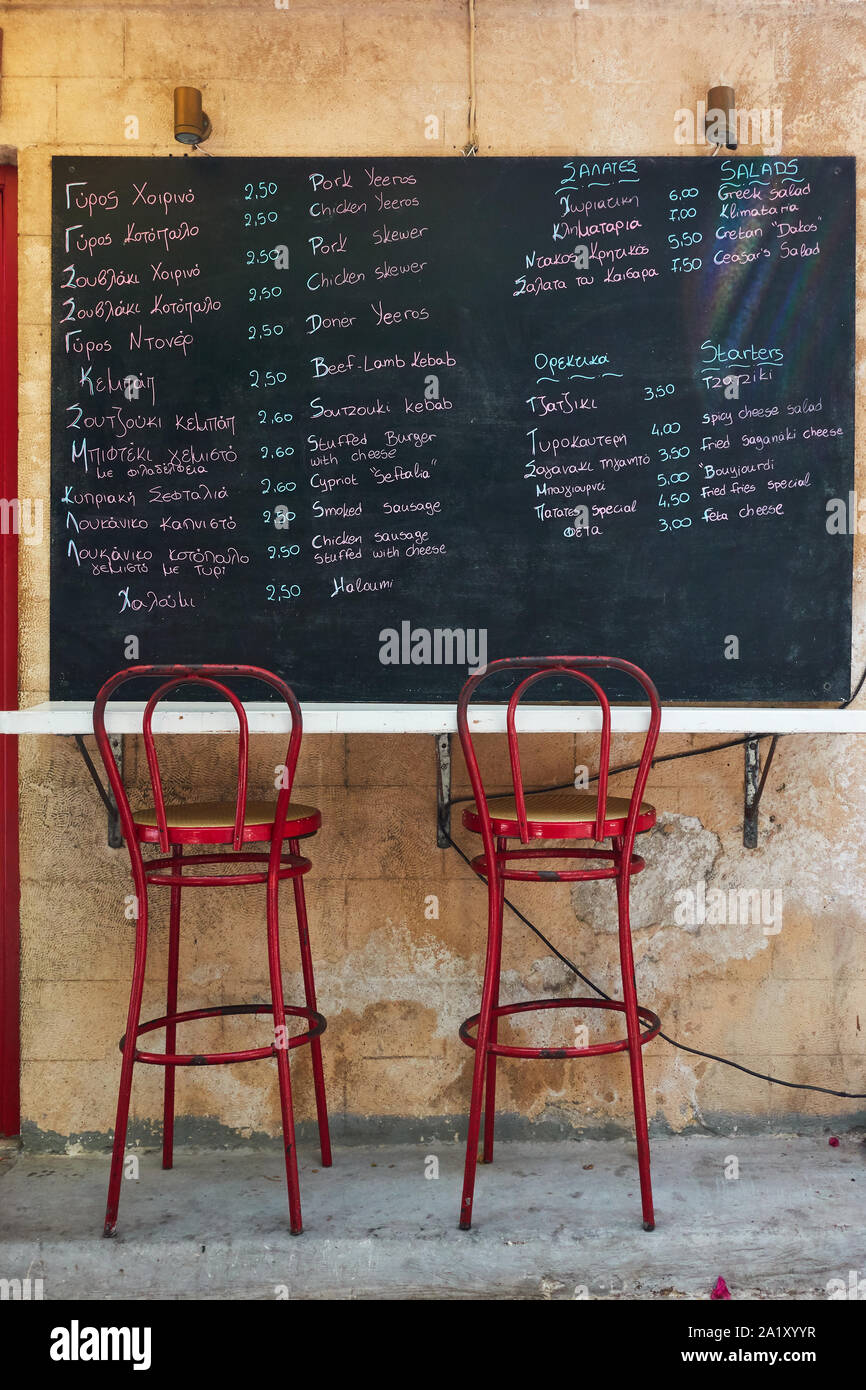 Γύρος Χοιρινό 2,50 Pork Yeeros
Γύρος Κοτόπουλο 2,50 Chicken Yeeros
Σουβλάκι Χοιρινό 2,50 Pork Skewer
Σουβλάκι Κοτόπουλο 2,50 Chicken Skewer
Γύρος Ντονέρ 2,50 Doner Yeeros
Κεμπάπ 2,50 Beef-Lamb Kebab
Σουτζούκι κεμπάπ 2,60 Soutzouki kebab
Μπιφτέκι γεμιστό 2,60 Stuffed Burger
με φιλαδέλφεια with cheese
Κυπριακή Σεφταλιά 2,60 Cypriot "Seftalia"
Λουκάνικο καπνιστό 2,50 Smoked sausage
Λουκάνικο κοτόπουλο 2,50 Chicken sausage
γεμιστό με τυρί stuffed with cheese
Χαλούμι 2,50 Haloumi
ΣΑΛΑΤΕΣ SALADS
Χωριατικη 6,00 Greek Salad
Κληματαρια 7,00 Klimataria
Ντακος Κρητικός 5,50 Cretan "Dakos"
Σαλατα του Καισαρα 7,50 Ceasar's Salad
Ορεκτικα Starters
Τζατζικι 3,50 Tzatziki
Τυροκαυτερη 4,00 spicy cheese salad
Σαγανακι τηγανητό 3,50 fried saganaki cheese
Μπουγιουρντί 5,00 "Bouyiourdi
Πατατες special 4,50 Fried fries special
Φετα 3,00 feta cheese
alamy
Image ID: 2A1XYYR
www.alamy.com